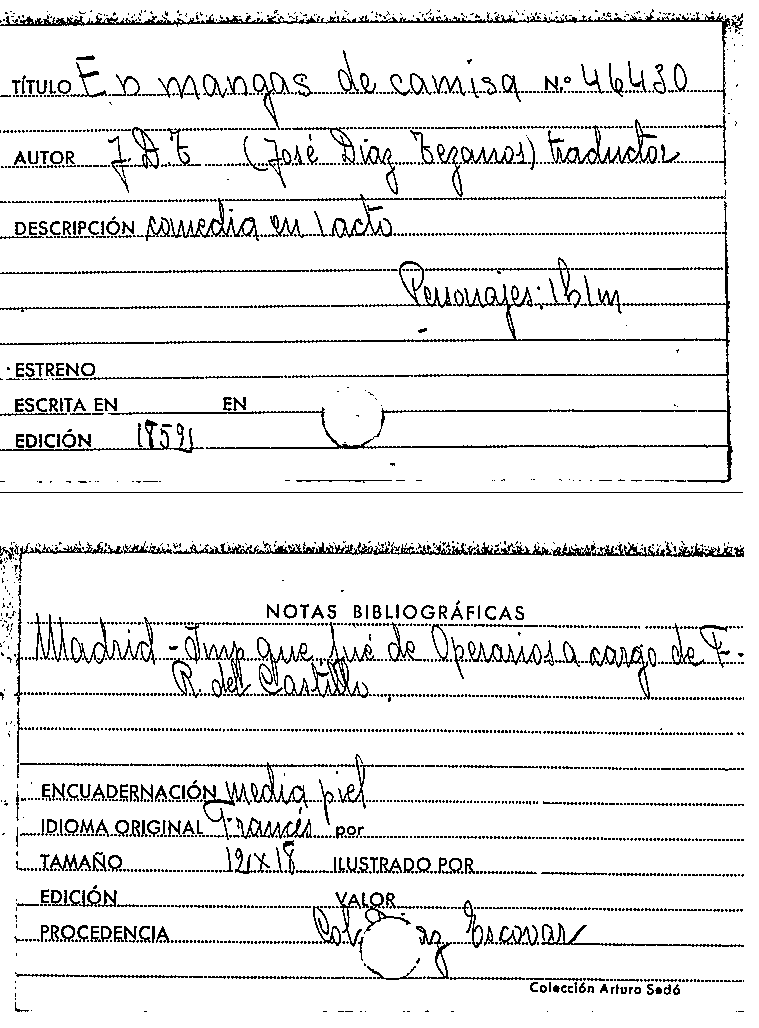 TÍTULO En mangas de camisa N.º 46430
AUTOR J.D.T (José Díaz Tezanos) traductor
DESCRIPCIÓN comedia en 1 acto
Personajes: 1h 1m
ESTRENO
ESCRITA EN EN
EDICIÓN 1859
NOTAS BIBLIOGRÁFICAS
Madrid - Imp que fué de Operarios a cargo de F.
R. del Castillo
ENCUADERNACIÓN media piel
IDIOMA ORIGINAL Francés por
TAMAÑO 12x18 ILUSTRADO POR
EDICIÓN VALOR
PROCEDENCIA Col. Escovar
Colección Arturo Sedó